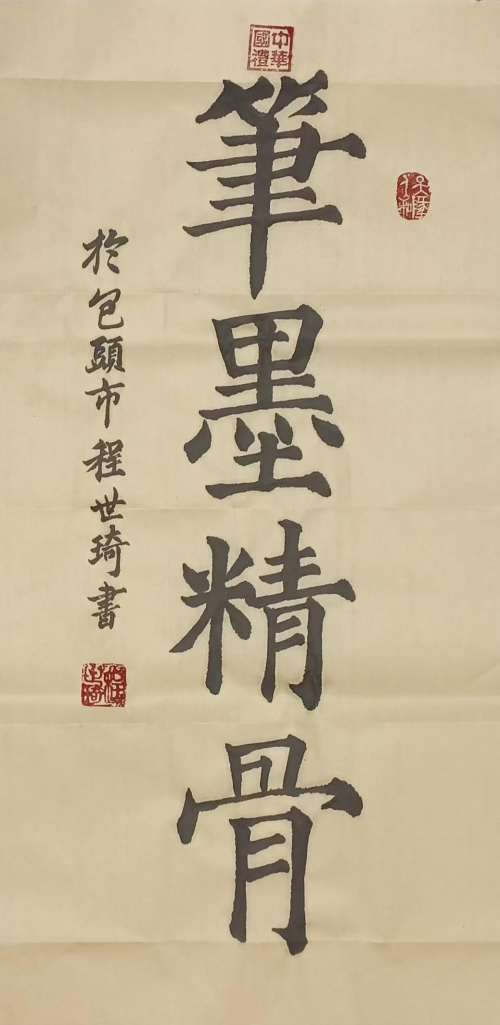 中華國禮
筆墨精骨
於包頭市程世琦書